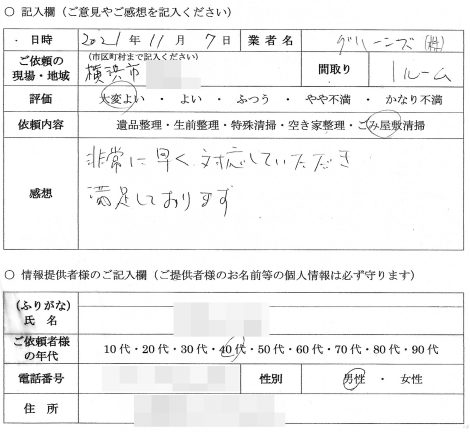 ○ 記入欄（ご意見やご感想を記入ください）
日時 2021年 11月 7日 業者名 グリーンズ(株)
ご依頼の現場・地域 (市区町村まで記入ください) 横浜市 間取り 1ルーム
評価 大変よい ・ よい ・ ふつう ・ やや不満 ・ かなり不満
依頼内容 遺品整理・生前整理・特殊清掃・空き家整理・ごみ屋敷清掃
感想
非常に早く対応していただき
満足しております
○ 情報提供者様のご記入欄（ご提供者様のお名前等の個人情報は必ず守ります）
(ふりがな)
氏 名
ご依頼者様の年代 10代・20代・30代・40代・50代・60代・70代・80代・90代
電話番号 性別 男性 ・ 女性
住 所